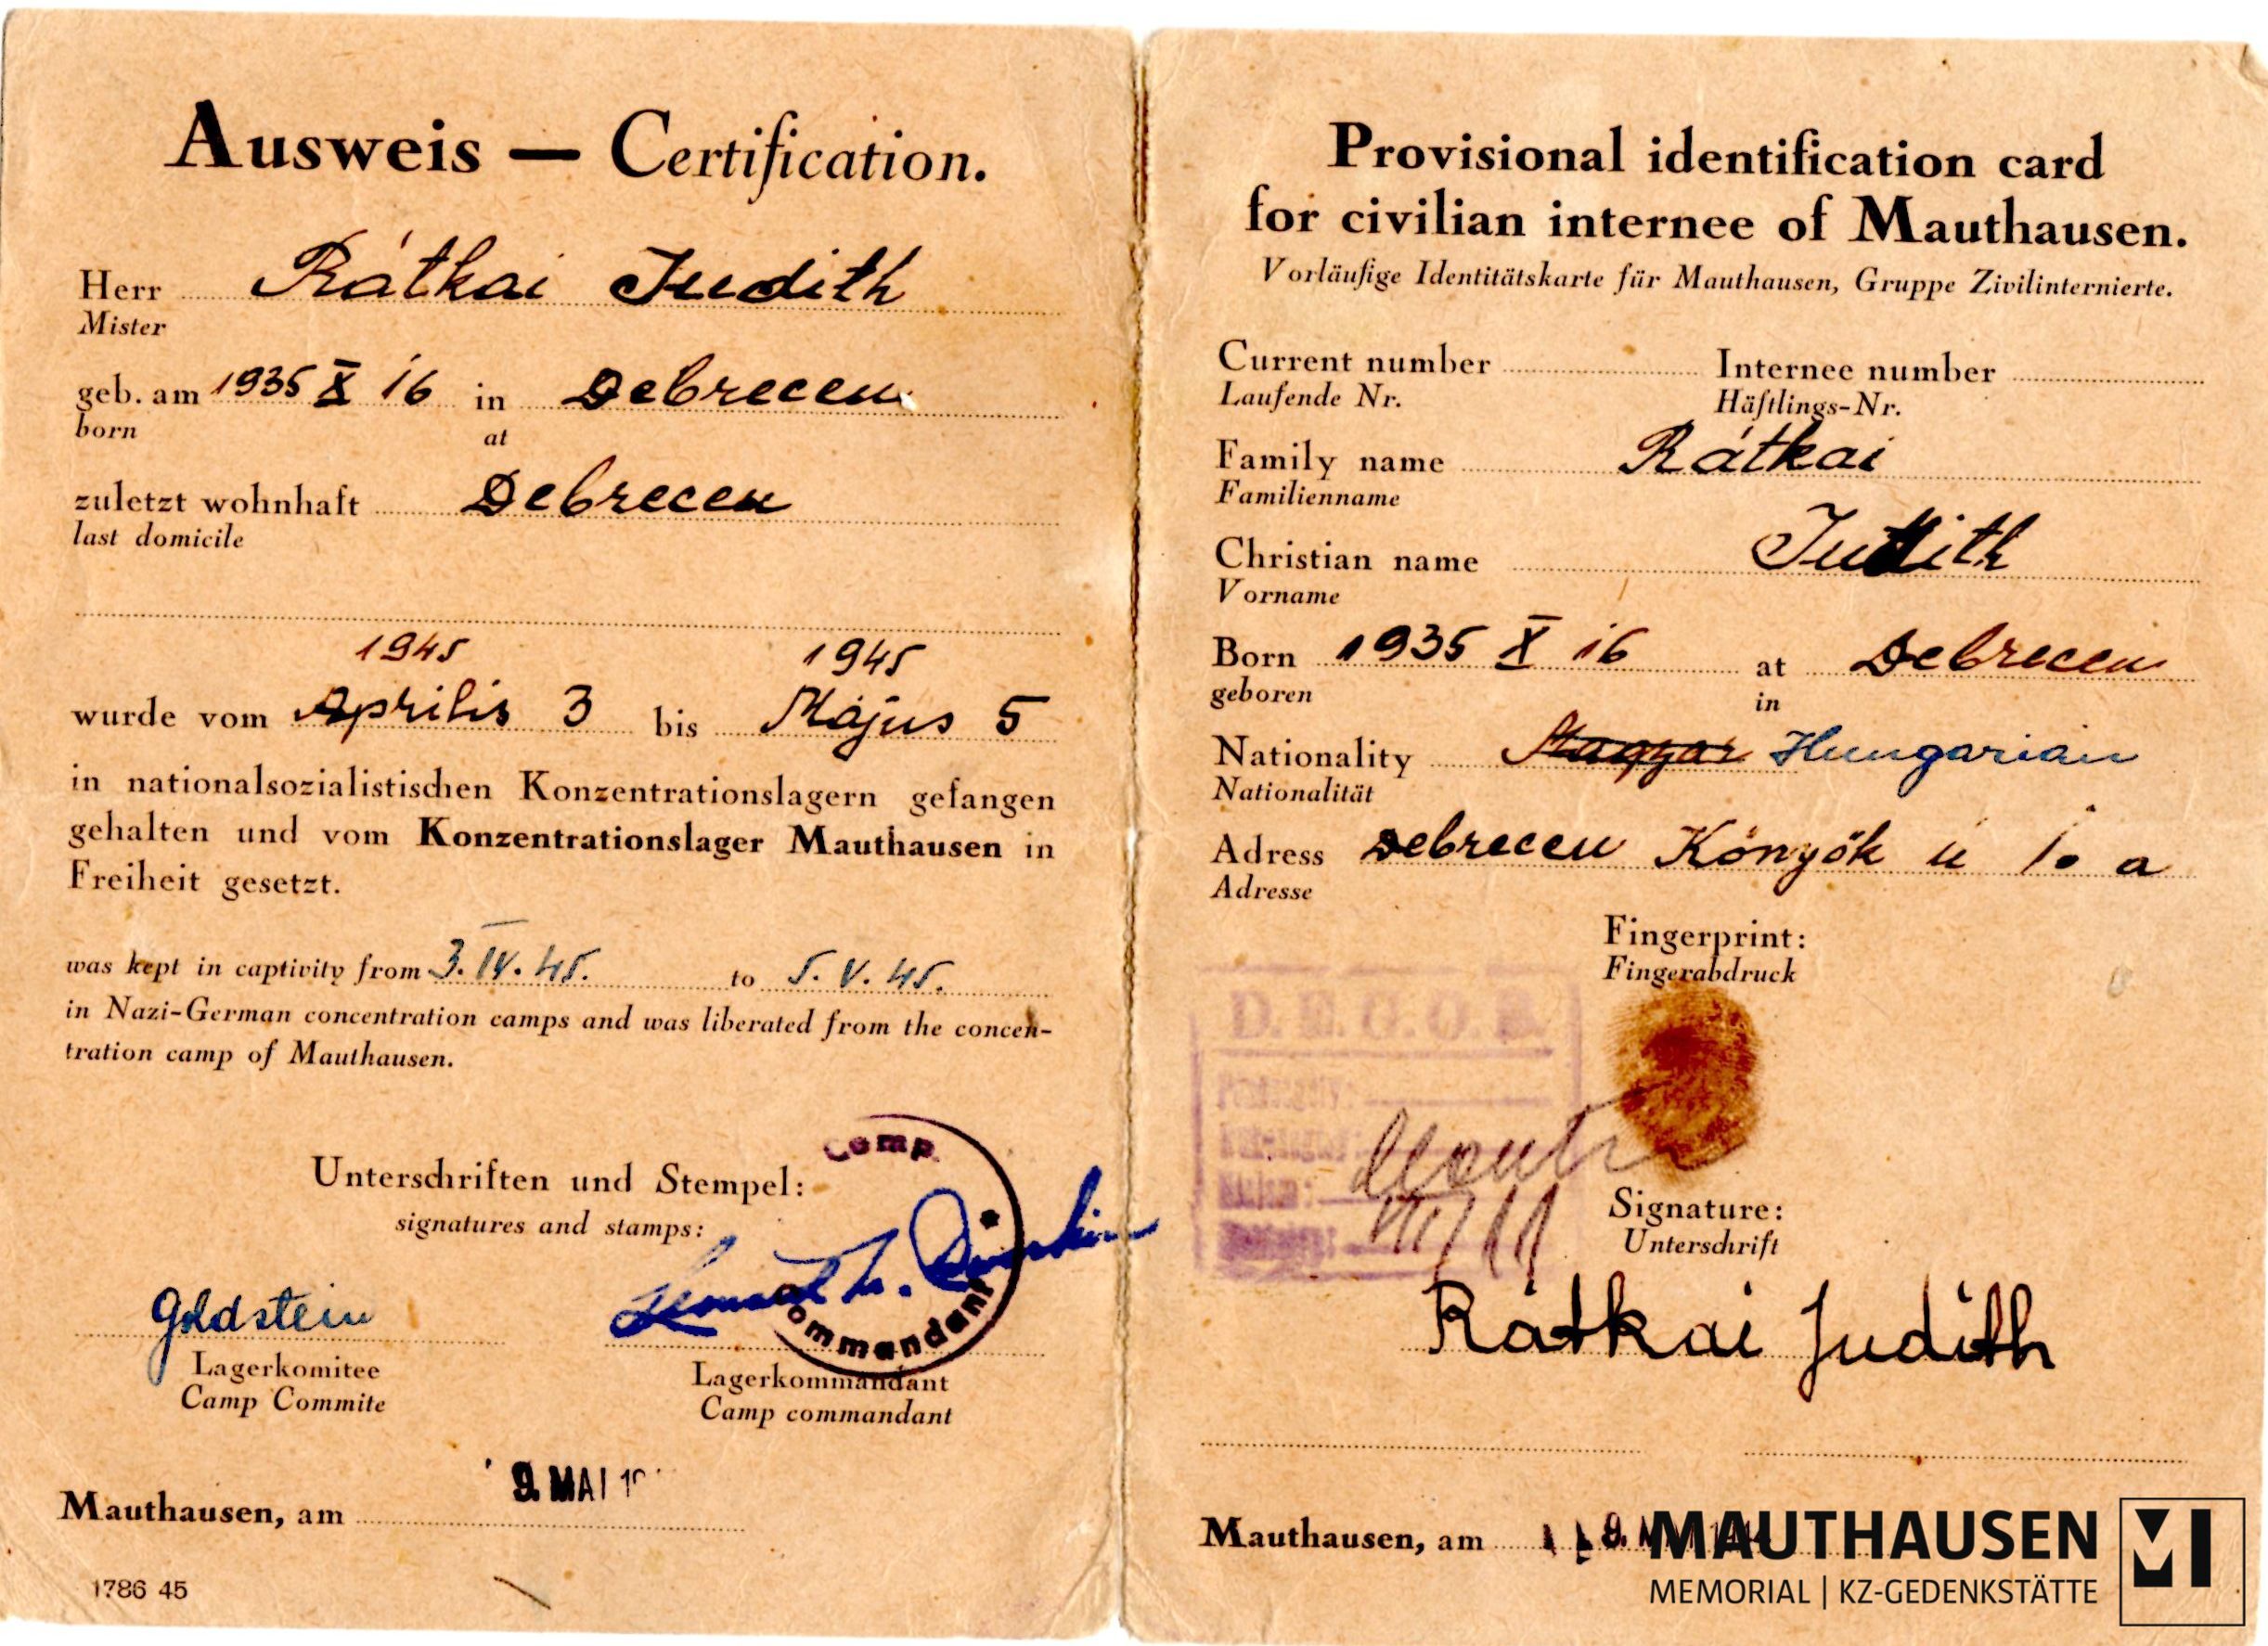 Ausweis — Certification.
Herr Rátkai Judith
Mister
geb. am 1935 X 16 in Debrecen
born at
zuletzt wohnhaft Debrecen
last domicile
1945 1945
wurde vom Április 3 bis Május 5
in nationalsozialistischen Konzentrationslagern gefangen
gehalten und vom Konzentrationslager Mauthausen in
Freiheit gesetzt.
was kept in captivity from 3. IV. 45. to 5. V. 45.
in Nazi-German concentration camps and was liberated from the concen-
tration camp of Mauthausen.
Camp
Unterschriften und Stempel:
signatures and stamps:
Commandant
Goldstein
Lagerkomitee
Camp Commite
Lagerkommandant
Camp commandant
9. MAI
Mauthausen, am
1786 45
Provisional identification card
for civilian internee of Mauthausen.
Vorläufige Identitätskarte für Mauthausen, Gruppe Zivilinternierte.
Current number Internee number
Laufende Nr. Häftlings-Nr.
Family name Rátkai
Familienname
Christian name Judith
Vorname
Born 1935 X 16 at Debrecen
geboren in
Nationality Magyar Hungarian
Nationalität
Adress Debrecen Könyök u 10 a
Adresse
Fingerprint:
Fingerabdruck
D.E.G.O.B.
Signature:
Unterschrift
Rátkai Judith
Mauthausen, am
MAUTHAUSEN
MEMORIAL | KZ-GEDENKSTÄTTE